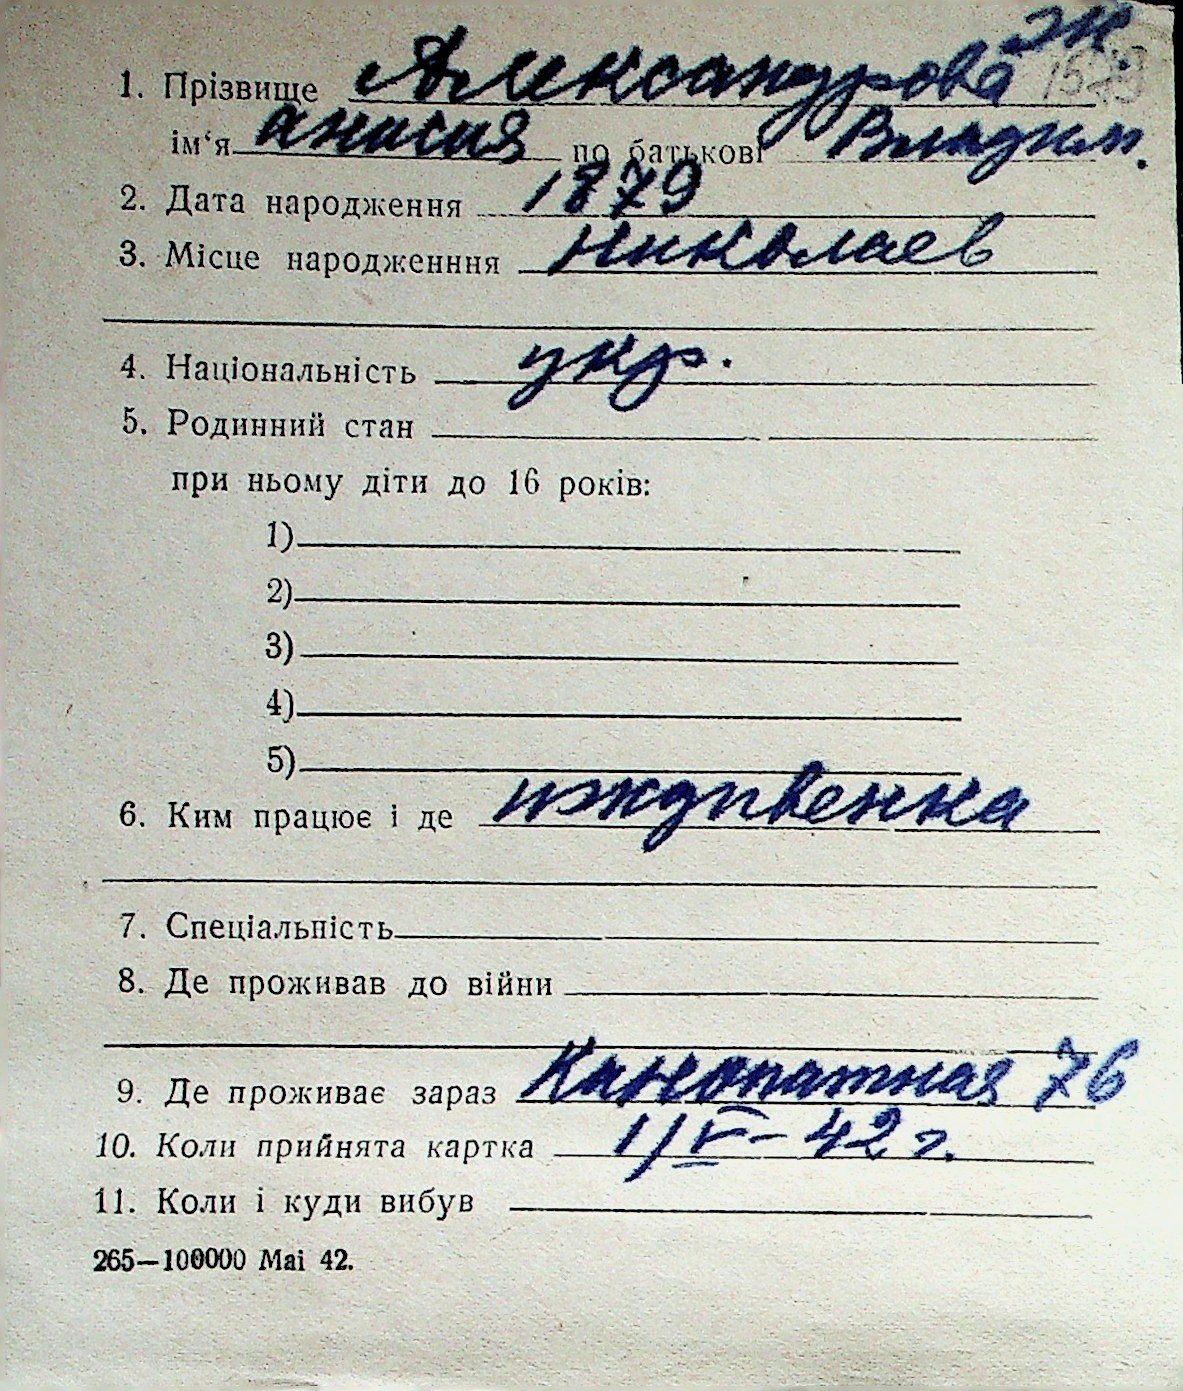 ж.
1579
1. Прізвище Александрова
ім‘я анисия по батькові Владим.
2. Дата народження 1879
3. Місце народженння Николаев
4. Національність укр.
5. Родинний стан
при ньому діти до 16 років:
1)
2)
3)
4)
5)
6. Ким працює і де иждивенка
7. Спеціальність
8. Де проживав до війни
9. Де проживає зараз Канопатная 76
10. Коли прийнята картка 1/V-42 г.
11. Коли і куди вибув
265—100000 Mai 42.